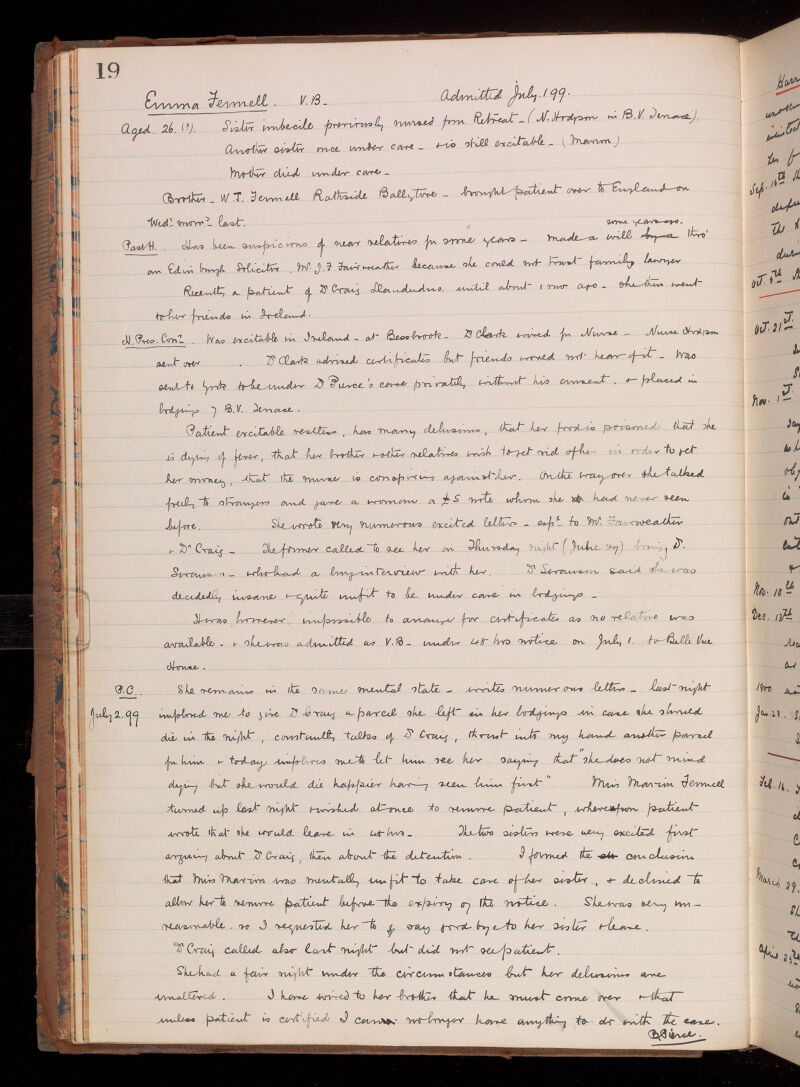 19
Emma Fennell. V.B. Admitted July. 1 99.
Aged. 26. (?). Sister imbecile previously nursed from Retreat - (N. Hodgson in B.V. Terrace).
Another sister once under care - & is still excitable - (Marion)
Mother died under care -
Brother - W.T. Fennell Rathside Ballytore - brought patient over to England on
Wedy morng last.
some years ago.
Past H. Has been suspicious of near relatives for some years - made a will by a thro'
an Edinburgh Solicitor. Mr J.F Fairweather because she could not trust family lawyer
Recently a patient of Dr Craig Llandudno. until about 1 mo ago - she then went
to her friends in Ireland.
H. Pres. Conn. Was excitable in Ireland - at Bessbrook. Dr Clark wired for Nurse - Nurse Hodgson
sent over. Dr Clark advised certificates but friends would not hear of it - Was
sent to York to be under Dr Pierce's care privately without his consent. & placed in
lodgings 7 B.V. Terrace.
Patient excitable restless, has many delusions, that her food is poisoned that she
is dying of fever, that her brother & other relatives wish to get rid of her in order to get
her money, that the nurse is conspiring against her. On the way over she talked
freely to strangers and gave a woman a £5 note whom she had never seen
before. She wrote very numerous excited letters - espy to Mr. Fairweather
& Dr Craig - The former called to see her on Thursday night (June 29) bring Dr.
Swanson - who had a long interview with her. Dr Swanson said she was
decidedly insane & quite unfit to be under care in lodgings -
It was, however, impossible to arrange for certificates as no relative was
available - & she was admitted as V.B. under 48 hrs notice on July 1. to Belle Vue
House.
P.C. She remains in the same mental state - writes numerous letters - last night
July 2. 99 implored me to give Dr Craig a parcel she left in her lodgings in case she should
die in the night, constantly talks of Dr Craig, thrust into my hand another parcel
for him & today implores me to let him see her saying that "she does not mind
dying but she would die happier having seen him first" Miss Marion Fennell
turned up last night & wished at once to remove patient, whereupon patient
wrote that she would leave in 48 hrs - The two sisters were very excited first
arguing about Dr Craig, then about the detention. I formed the conclusion
that Miss Marion was mentally unfit to take care of her sister, & declined to
allow her to remove patient before the expiry of the notice. She was very un-
reasonable. so I requested her to say good bye to her sister & leave.
Dr Craig called also last night but did not see patient.
She had a fair night under the circumstances but her delusions are
unaltered. I have wired to her brother that he must come over & that
unless patient is certified I can no longer have anything to do with the case.
B Pierce.
Sep. 16th
Oct. 5th
Oct. 21st.
Nov. 1st.
Nov. 10th
Dec. 13th
1900
Jan. 23.
Feb. 16.
March 29.
April 23rd